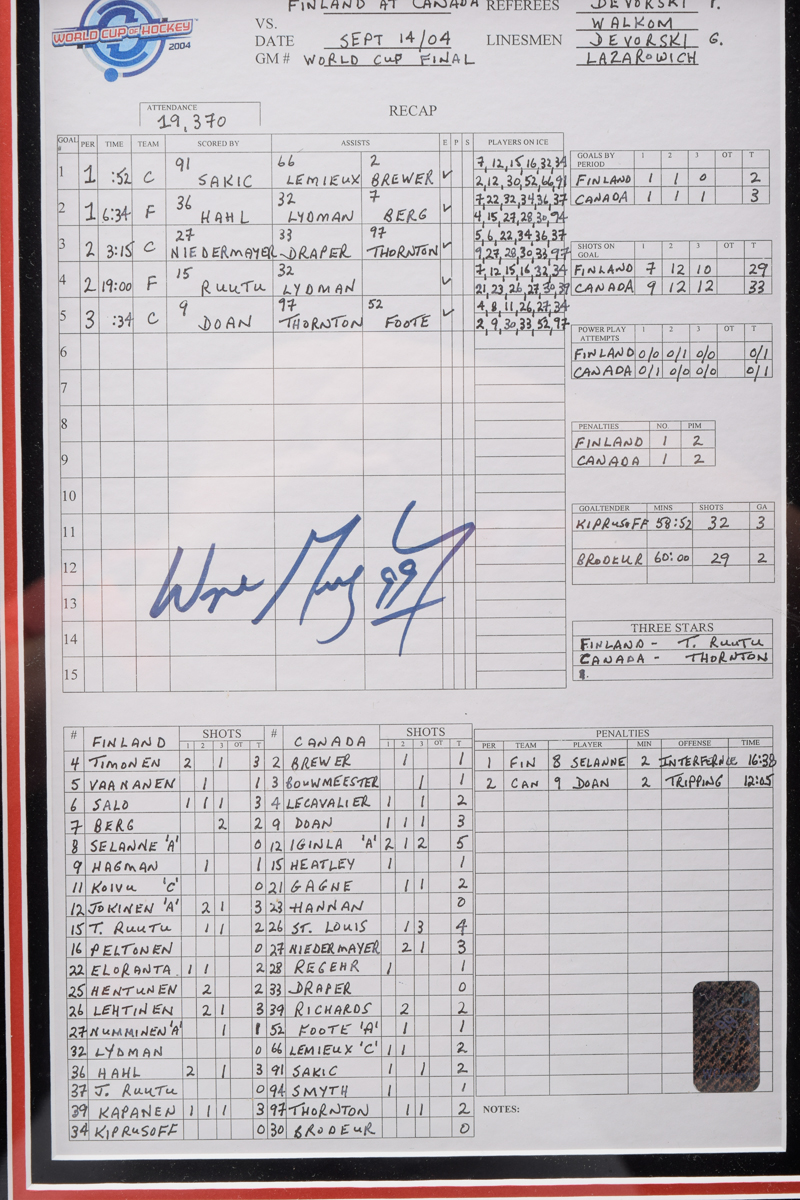 FINLAND AT CANADA REFEREES DEVORSKI P.
WORLD CUP OF HOCKEY 2004
VS. WALKOM
DATE SEPT 14/04 LINESMEN DEVORSKI G.
GM # WORLD CUP FINAL LAZAROWICH
ATTENDANCE 19,370
RECAP
GOAL # PER TIME TEAM SCORED BY ASSISTS E P S PLAYERS ON ICE
1 1 :52 C 91 SAKIC 66 LEMIEUX 2 BREWER ✓ 7,12,15,16,32,34
2,12,30,52,66,91
2 1 6:34 F 36 HAHL 32 LYDMAN 7 BERG ✓ 7,22,32,34,36,37
4,15,27,28,30,94
3 2 3:15 C 27 NIEDERMAYER 33 DRAPER 97 THORNTON ✓ 5,6,22,34,36,37
9,27,28,30,33,97
4 2 19:00 F 15 RUUTU 32 LYDMAN ✓ 7,12,15,16,32,34
21,23,26,27,30,39
5 3 :34 C 9 DOAN 97 THORNTON 52 FOOTE ✓ 4,8,11,26,27,34
2,9,30,33,52,97
6
7
8
9
10
11
12
13
14
15
GOALS BY PERIOD 1 2 3 OT T
FINLAND 1 1 0 2
CANADA 1 1 1 3
SHOTS ON GOAL 1 2 3 OT T
FINLAND 7 12 10 29
CANADA 9 12 12 33
POWER PLAY ATTEMPTS 1 2 3 OT T
FINLAND 0/0 0/1 0/0 0/1
CANADA 0/1 0/0 0/0 0/1
PENALTIES NO. PIM
FINLAND 1 2
CANADA 1 2
GOALTENDER MINS SHOTS GA
KIPRUSOFF 58:52 32 3
BRODEUR 60:00 29 2
Wayne Gretzky 99
THREE STARS
FINLAND - T. RUUTU
CANADA - THORNTON
# FINLAND SHOTS 1 2 3 OT T
4 TIMONEN 2 1 3
5 VAANANEN 1 1
6 SALO 1 1 1 3
7 BERG 2 2
8 SELANNE 'A' 0
9 HAGMAN 1 1
11 KOIVU 'C' 0
12 JOKINEN 'A' 2 1 3
15 T. RUUTU 1 1 2
16 PELTONEN 0
22 ELORANTA 1 1 2
25 HENTUNEN 2 2
26 LEHTINEN 2 1 3
27 NUMMINEN 'A' 1 1
32 LYDMAN 0
36 HAHL 2 1 3
37 J. RUUTU 0
39 KAPANEN 1 1 1 3
34 KIPRUSOFF 0
# CANADA SHOTS 1 2 3 OT T
2 BREWER 1 1
3 BOUWMEESTER 1 1
4 LECAVALIER 1 1 2
9 DOAN 1 1 1 3
12 IGINLA 'A' 2 1 2 5
15 HEATLEY 1 1
21 GAGNE 1 1 2
23 HANNAN 0
26 ST. LOUIS 1 3 4
27 NIEDERMAYER 2 1 3
28 REGEHR 1 1
33 DRAPER 0
39 RICHARDS 2 2
52 FOOTE 'A' 1 1
66 LEMIEUX 'C' 1 1 2
91 SAKIC 1 1 2
94 SMYTH 1 1
97 THORNTON 1 1 2
30 BRODEUR 0
PENALTIES
PER TEAM PLAYER MIN OFFENSE TIME
1 FIN 8 SELANNE 2 INTERFERNCE 16:38
2 CAN 9 DOAN 2 TRIPPING 12:05
NOTES: